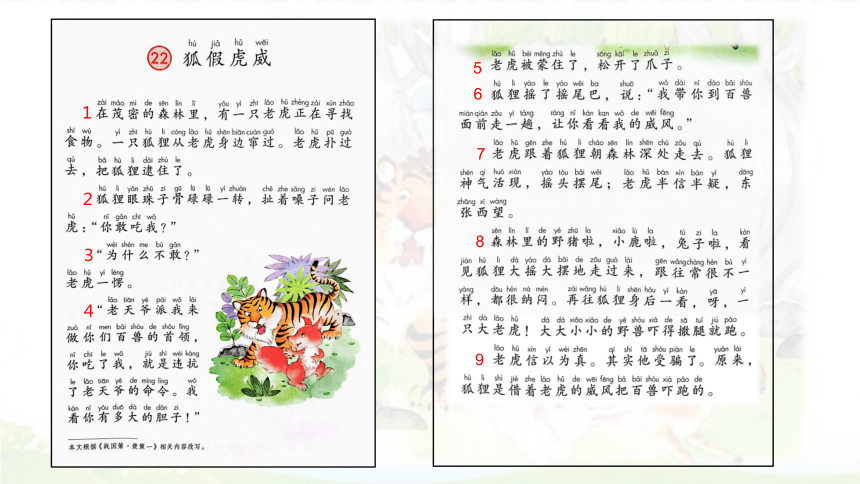 hú jiǎ hǔ wēi
22 狐假虎威
zài mào mì de sēn lín lǐ yǒu yì zhī lǎo hǔ zhèng zài xún zhǎo
1 在茂密的森林里，有一只老虎正在寻找
shí wù yì zhī hú li cóng lǎo hǔ shēn biān cuàn guò lǎo hǔ pū guò
食物。一只狐狸从老虎身边窜过。老虎扑过
qù bǎ hú li dǎi zhù le
去，把狐狸逮住了。
hú li yǎn zhū zi gū lù lù yí zhuàn chě zhe sǎng zi wèn lǎo
2 狐狸眼珠子骨碌碌一转，扯着嗓子问老
hǔ nǐ gǎn chī wǒ
虎：“你敢吃我？”
wèi shén me bù gǎn
3 “为什么不敢？”
lǎo hǔ yí lèng
老虎一愣。
lǎo tiān yé pài wǒ lái
4 “老天爷派我来
zuò nǐ men bǎi shòu de shǒu lǐng
做你们百兽的首领，
nǐ chī le wǒ jiù shì wéi kàng
你吃了我，就是违抗
le lǎo tiān yé de mìng lìng wǒ
了老天爷的命令。我
kàn nǐ yǒu duō dà de dǎn zi
看你有多大的胆子！”
本文根据《战国策·楚策一》相关内容改写。
lǎo hǔ bèi mēng zhù le sōng kāi le zhuǎ zi
5 老虎被蒙住了，松开了爪子。
hú li yáo le yáo wěi ba shuō wǒ dài nǐ dào bǎi shòu
6 狐狸摇了摇尾巴，说：“我带你到百兽
miàn qián zǒu yí tàng ràng nǐ kàn kan wǒ de wēi fēng
面前走一趟，让你看看我的威风。”
lǎo hǔ gēn zhe hú li cháo sēn lín shēn chù zǒu qù hú li
7 老虎跟着狐狸朝森林深处走去。狐狸
shén qì huó xiàn yáo tóu bǎi wěi lǎo hǔ bàn xìn bàn yí dōng
神气活现，摇头摆尾；老虎半信半疑，东
zhāng xī wàng
张西望。
sēn lín lǐ de yě zhū la xiǎo lù la tù zi la kàn
8 森林里的野猪啦，小鹿啦，兔子啦，看
jiàn hú li dà yáo dà bǎi de zǒu guò lái gēn wǎng cháng hěn bù yí
见狐狸大摇大摆地走过来，跟往常很不一
yàng dōu hěn nà mèn zài wǎng hú li shēn hòu yí kàn yā yì
样，都很纳闷。再往狐狸身后一看，呀，一
zhī dà lǎo hǔ dà dà xiǎo xiǎo de yě shòu xià de sā tuǐ jiù pǎo
只大老虎！大大小小的野兽吓得撒腿就跑。
lǎo hǔ xìn yǐ wéi zhēn qí shí tā shòu piàn le yuán lái
9 老虎信以为真。其实他受骗了。原来，
hú li shì jiè zhe lǎo hǔ de wēi fēng bǎ bǎi shòu xià pǎo de
狐狸是借着老虎的威风把百兽吓跑的。